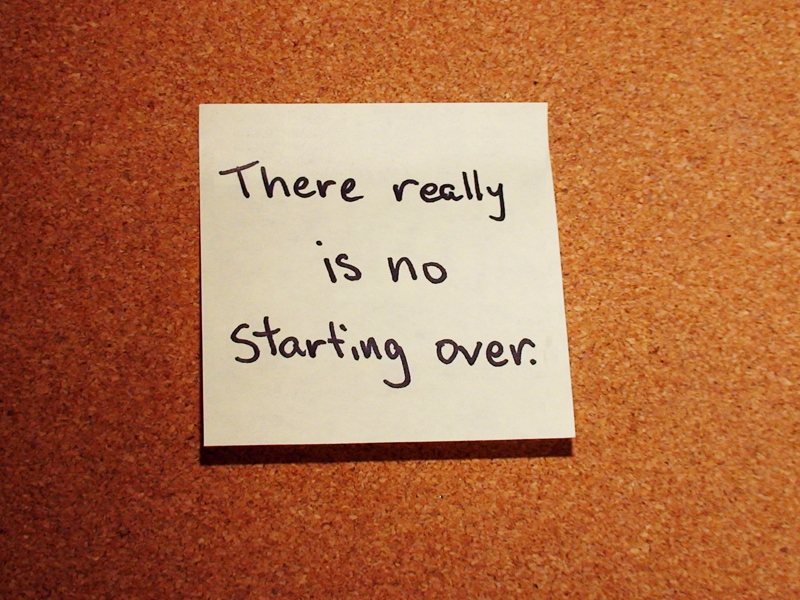 There really
is no
Starting over.